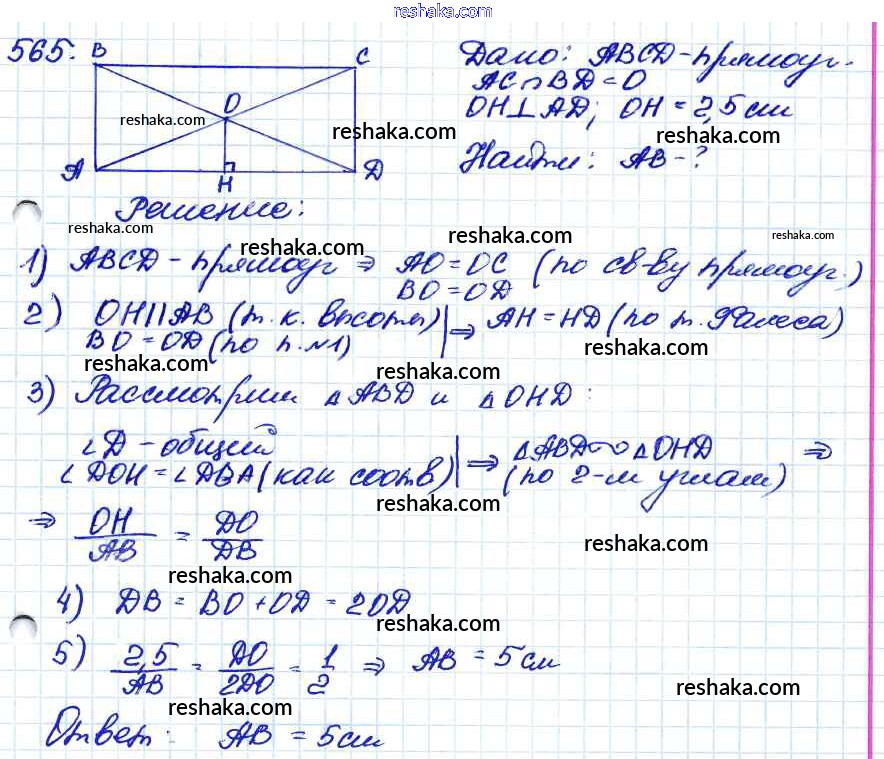 reshaka.com
565.
B C
O
A H D
reshaka.com
reshaka.com
Дано: ABCD-прямоуг.
AC∩BD=O
OH⊥AD; OH=2,5 см
reshaka.com
Найти: AB-?
Решение:
reshaka.com
reshaka.com
reshaka.com
reshaka.com
1) ABCD-прямоуг ⇒ AO=OC (по св-ву прямоуг.)
BO=OD
2) OH||AB (т.к. высоты) ⇒ AH=HD (по т. Фалеса)
BO=OD (по п.№1)
reshaka.com
reshaka.com
reshaka.com
3) Рассмотрим △ABD и △OHD:
∠D-общий ⇒ △ABD∾△OHD ⇒
∠DOH=∠DBA (как соотв) (по 2-м углам)
reshaka.com
⇒ OH/AB = DO/DB
reshaka.com
reshaka.com
4) DB = BO+OD = 2OD
reshaka.com
5) 2,5/AB = DO/2DO = 1/2 ⇒ AB = 5см
reshaka.com
reshaka.com
Ответ: AB = 5см